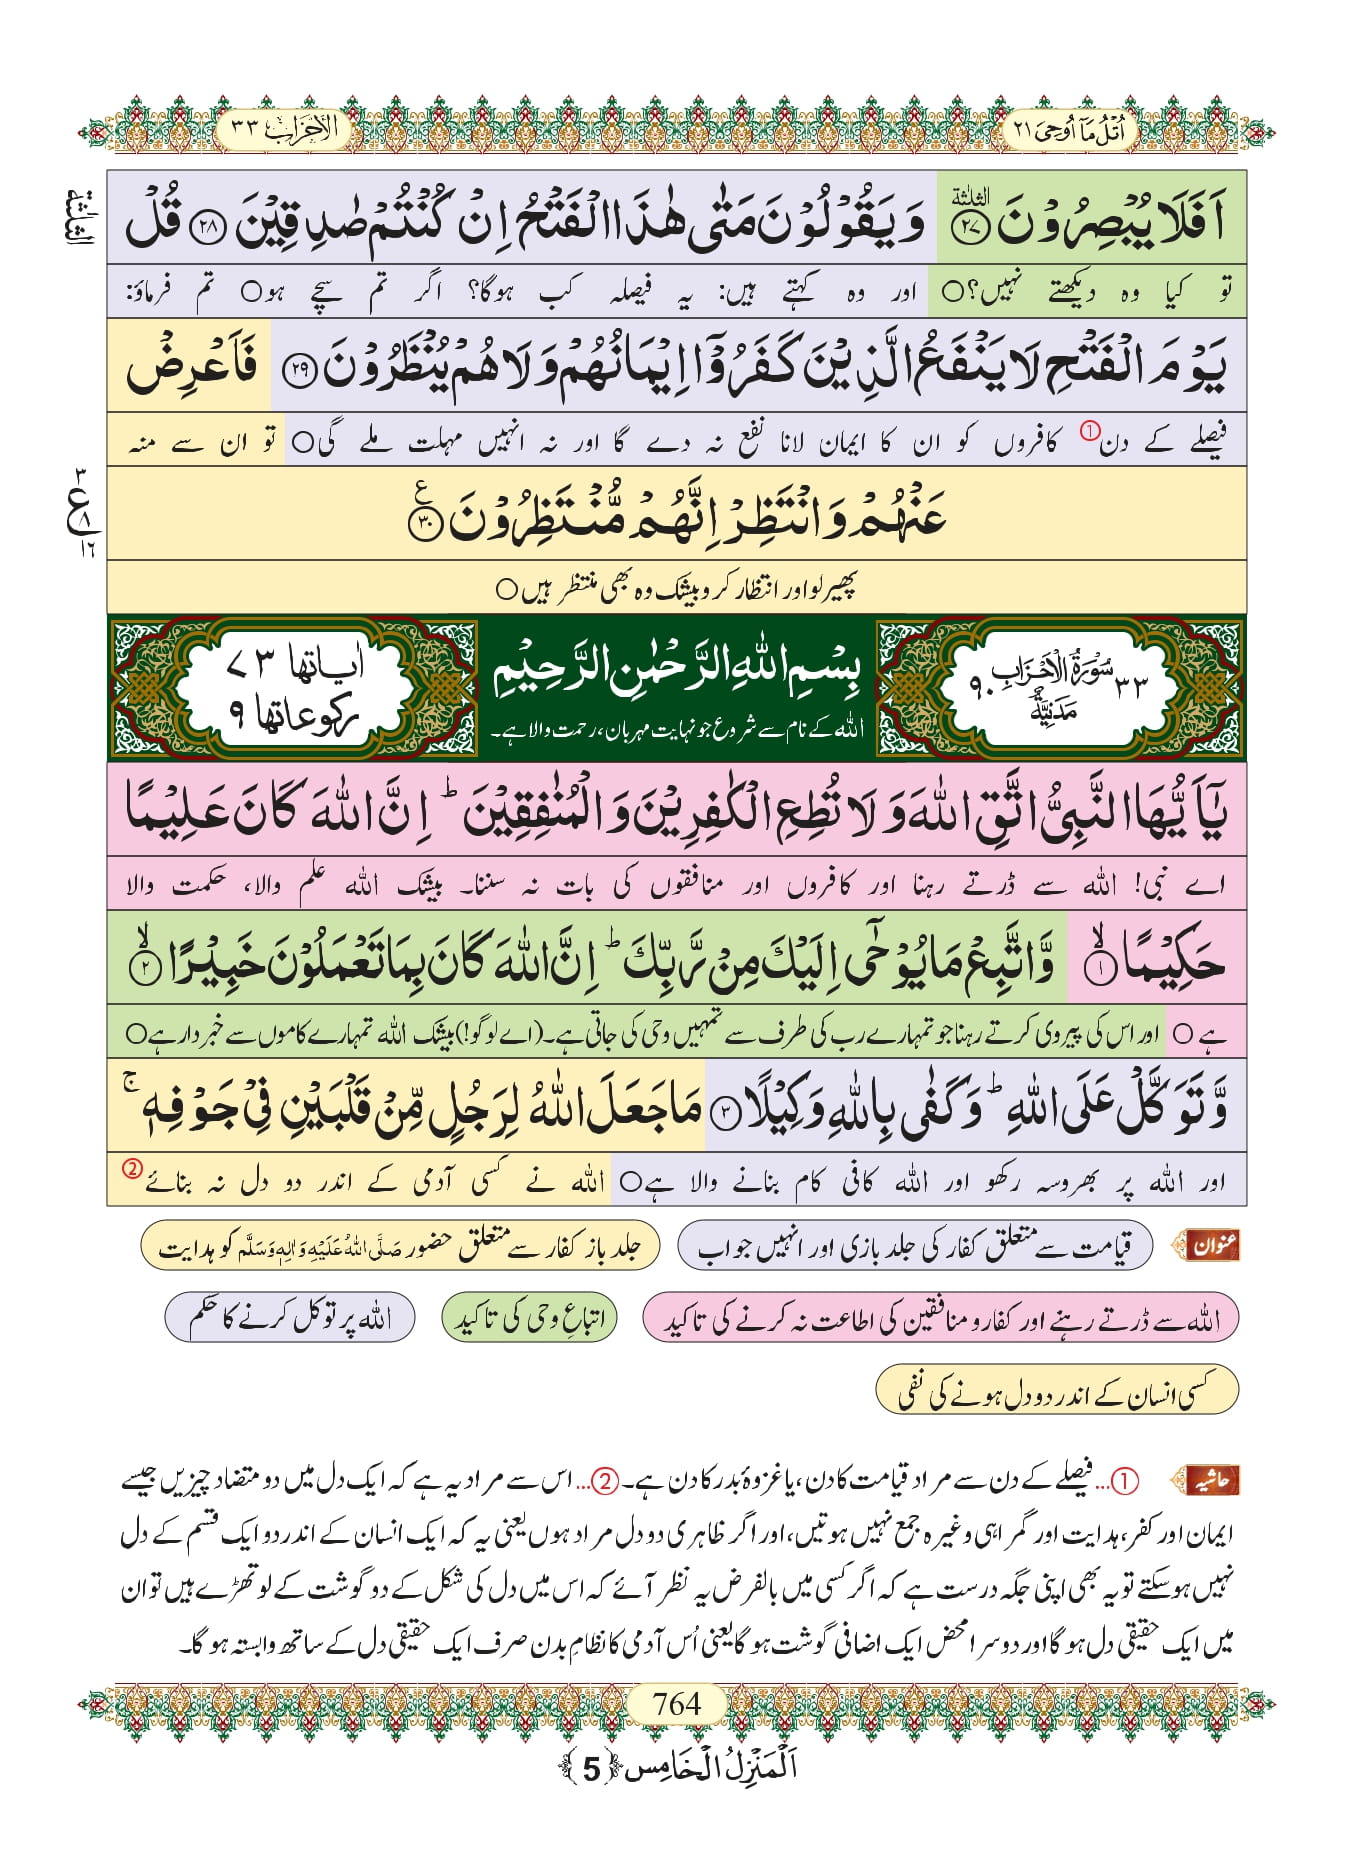 اُتْلُ مَاۤ اُوْحِیَ ۲۱
الْاَحْزَاب ۳۳
الثلثة
اَفَلَا یُبْصِرُوْنَ ﴿۲۷﴾ وَ یَقُوْلُوْنَ مَتٰى هٰذَا الْفَتْحُ اِنْ كُنْتُمْ صٰدِقِیْنَ ﴿۲۸﴾ قُلْ
الثلثة
تو کیا وہ دیکھتے نہیں؟○ اور وہ کہتے ہیں: یہ فیصلہ کب ہوگا؟ اگر تم سچے ہو○ تم فرماؤ:
یَوْمَ الْفَتْحِ لَا یَنْفَعُ الَّذِیْنَ كَفَرُوْۤا اِیْمَانُهُمْ وَ لَا هُمْ یُنْظَرُوْنَ ﴿۲۹﴾ فَاَعْرِضْ
فیصلے کے دن① کافروں کو ان کا ایمان لانا نفع نہ دے گا اور نہ انہیں مہلت ملے گی○ تو ان سے منہ
عَنْهُمْ وَ انْتَظِرْ اِنَّهُمْ مُّنْتَظِرُوْنَ ﴿۳۰﴾ ع
۳
ع ۸
۱۶
پھیرلو اور انتظار کرو بیشک وہ بھی منتظر ہیں○
۳۳ سُوْرَةُ الْاَحْزَابِ مَدَنِیَّةٌ ۹۰
بِسْمِ اللّٰهِ الرَّحْمٰنِ الرَّحِیْمِ
اللہ کے نام سے شروع جو نہایت مہربان، رحمت والا ہے۔
اٰیاتها ۷۳
ركوعاتها ۹
یٰۤاَیُّهَا النَّبِیُّ اتَّقِ اللّٰهَ وَ لَا تُطِعِ الْكٰفِرِیْنَ وَ الْمُنٰفِقِیْنَ ؕ اِنَّ اللّٰهَ كَانَ عَلِیْمًا
اے نبی! اللہ سے ڈرتے رہنا اور کافروں اور منافقوں کی بات نہ سننا۔ بیشک اللہ علم والا، حکمت والا
حَكِیْمًا ۙ﴿۱﴾ وَّ اتَّبِعْ مَا یُوْحٰۤى اِلَیْكَ مِنْ رَّبِّكَ ؕ اِنَّ اللّٰهَ كَانَ بِمَا تَعْمَلُوْنَ خَبِیْرًا ۙ﴿۲﴾
ہے○ اور اس کی پیروی کرتے رہنا جو تمہارے رب کی طرف سے تمہیں وحی کی جاتی ہے۔ (اے لوگو!) بیشک اللہ تمہارے کاموں سے خبردار ہے○
وَّ تَوَكَّلْ عَلَى اللّٰهِ ؕ وَ كَفٰى بِاللّٰهِ وَكِیْلًا ﴿۳﴾ مَا جَعَلَ اللّٰهُ لِرَجُلٍ مِّنْ قَلْبَیْنِ فِیْ جَوْفِهٖ ۚ
اور اللہ پر بھروسہ رکھو اور اللہ کافی کام بنانے والا ہے○ اللہ نے کسی آدمی کے اندر دو دل نہ بنائے②
عنوان
قیامت سے متعلق کفار کی جلد بازی اور انہیں جواب
جلد باز کفار سے متعلق حضور صَلَّی اللہُ عَلَیْہِ وَاٰلِہٖ وَسَلَّم کو ہدایت
اللہ سے ڈرتے رہنے اور کفار و منافقین کی اطاعت نہ کرنے کی تاکید
اتباعِ وحی کی تاکید
اللہ پر توکل کرنے کا حکم
کسی انسان کے اندر دو دل ہونے کی نفی
حاشیہ
①... فیصلے کے دن سے مراد قیامت کا دن، یا غزوۂ بدر کا دن ہے۔ ②... اس سے مراد یہ ہے کہ ایک دل میں دو متضاد چیزیں جیسے
ایمان اور کفر، ہدایت اور گمراہی وغیرہ جمع نہیں ہوتیں، اور اگر ظاہری دو دل مراد ہوں یعنی یہ کہ ایک انسان کے اندر دو ایک قسم کے دل
نہیں ہوسکتے تو یہ بھی اپنی جگہ درست ہے کہ اگر کسی میں بالفرض یہ نظر آئے کہ اس میں دل کی شکل کے دو گوشت کے لوتھڑے ہیں تو ان
میں ایک حقیقی دل ہوگا اور دوسرا محض ایک اضافی گوشت ہوگا یعنی اُس آدمی کا نظامِ بدن صرف ایک حقیقی دل کے ساتھ وابستہ ہوگا۔
764
اَلْمَنْزِلُ الْخَامِس ﴿5﴾